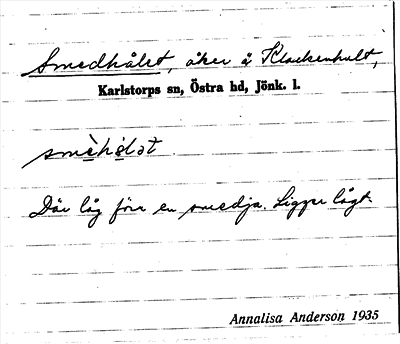 Smedhålet, åker å Klockenhult,
Karlstorps sn, Östra hd, Jönk. l.
Där låg förr en smedja. Ligger lågt.
Annalisa Anderson 1935